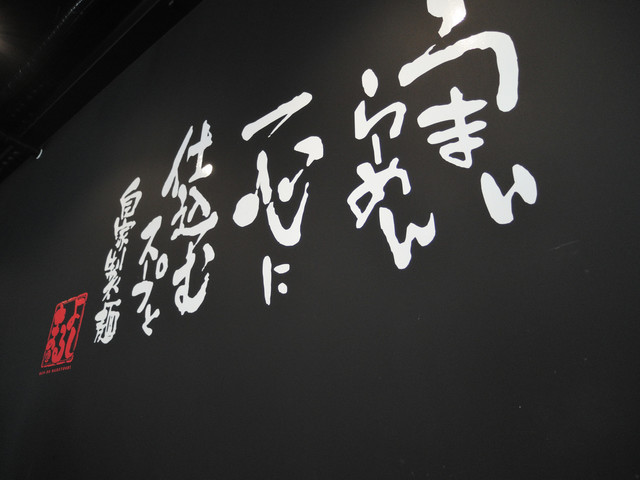 うまい
らーめん
一心に
仕込む
スープと
自家製麺